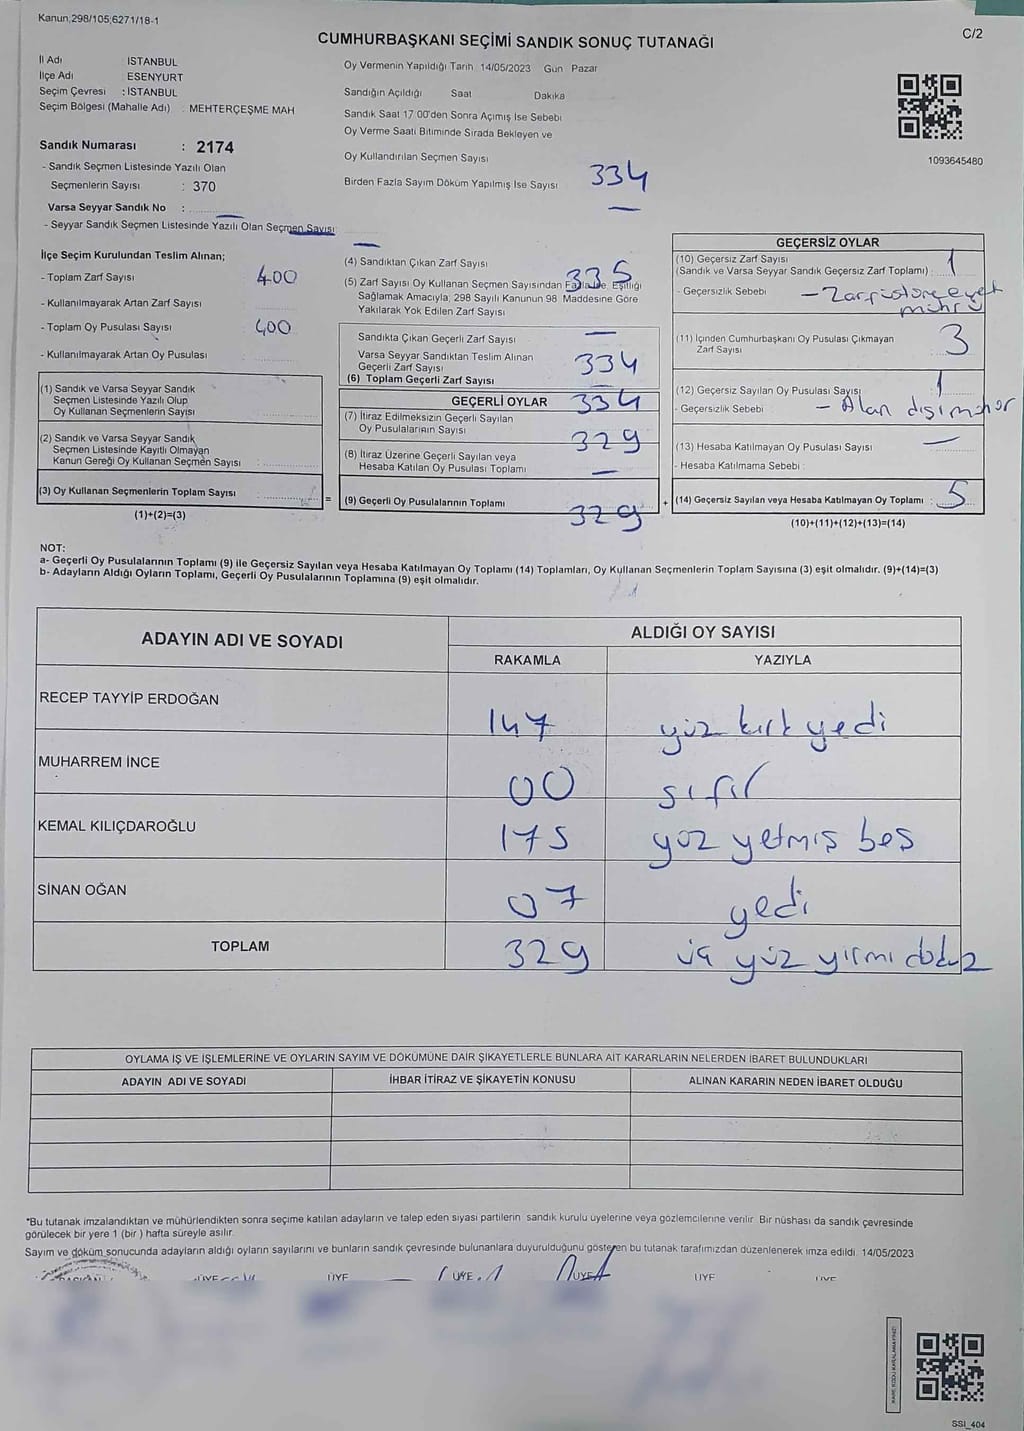 Kanun;298/105;6271/18-1
C/2
CUMHURBAŞKANI SEÇİMİ SANDIK SONUÇ TUTANAĞI
İl Adı : İSTANBUL
İlçe Adı : ESENYURT
Seçim Çevresi : İSTANBUL
Seçim Bölgesi (Mahalle Adı) : MEHTERÇEŞME MAH
Oy Vermenin Yapıldığı Tarih: 14/05/2023 Gün Pazar
Sandığın Açıldığı Saat Dakika
Sandık Saat 17 00'den Sonra Açımış Ise Sebebi
Oy Verme Saati Bitiminde Sırada Bekleyen ve
Oy Kullandırılan Seçmen Sayısı
Birden Fazla Sayım Döküm Yapılmış Ise Sayısı 334
1093645480
Sandık Numarası : 2174
- Sandık Seçmen Listesinde Yazılı Olan
Seçmenlerin Sayısı : 370
Varsa Seyyar Sandık No :
- Seyyar Sandık Seçmen Listesinde Yazılı Olan Seçmen Sayısı
İlçe Seçim Kurulundan Teslim Alınan;
- Toplam Zarf Sayısı 400
- Kullanılmayarak Artan Zarf Sayısı
- Toplam Oy Pusulası Sayısı 400
- Kullanılmayarak Artan Oy Pusulası
(1) Sandık ve Varsa Seyyar Sandık
Seçmen Listesinde Yazılı Olup
Oy Kullanan Seçmenlerin Sayısı
(2) Sandık ve Varsa Seyyar Sandık
Seçmen Listesinde Kayıtlı Olmayan
Kanun Gereği Oy Kullanan Seçmen Sayısı
(3) Oy Kullanan Seçmenlerin Toplam Sayısı
(1)+(2)=(3)
=
(4) Sandıktan Çıkan Zarf Sayısı 335
(5) Zarf Sayısı Oy Kullanan Seçmen Sayısından Fazla ise, Eşitliği
Sağlamak Amacıyla; 298 Sayılı Kanunun 98 Maddesine Göre
Yakılarak Yok Edilen Zarf Sayısı —
Sandıkta Çıkan Geçerli Zarf Sayısı 334
Varsa Seyyar Sandıktan Teslim Alınan
Geçerli Zarf Sayısı —
(6) Toplam Geçerli Zarf Sayısı 334
GEÇERLİ OYLAR
(7) İtiraz Edilmeksizin Geçerli Sayılan
Oy Pusulalarının Sayısı 329
(8) İtiraz Üzerine Geçerli Sayılan veya
Hesaba Katılan Oy Pusulası Toplamı —
(9) Geçerli Oy Pusulalarının Toplamı 329
+
GEÇERSİZ OYLAR
(10) Geçersiz Zarf Sayısı
(Sandık ve Varsa Seyyar Sandık Geçersiz Zarf Toplamı) : 1
- Geçersizlik Sebebi – Zarf üstüne evet
mührü
(11) İçinden Cumhurbaşkanı Oy Pusulası Çıkmayan
Zarf Sayısı 3
(12) Geçersiz Sayılan Oy Pusulası Sayısı 1
- Geçersizlik Sebebi – Alan dışı mühür
(13) Hesaba Katılmayan Oy Pusulası Sayısı —
- Hesaba Katılmama Sebebi :
(14) Geçersiz Sayılan veya Hesaba Katılmayan Oy Toplamı : 5
(10)+(11)+(12)+(13)=(14)
NOT:
a- Geçerli Oy Pusulalarının Toplamı (9) ile Geçersiz Sayılan veya Hesaba Katılmayan Oy Toplamı (14) Toplamları, Oy Kullanan Seçmenlerin Toplam Sayısına (3) eşit olmalıdır. (9)+(14)=(3)
b- Adayların Aldığı Oyların Toplamı, Geçerli Oy Pusulalarının Toplamına (9) eşit olmalıdır.
ADAYIN ADI VE SOYADI
ALDIĞI OY SAYISI
RAKAMLA YAZIYLA
RECEP TAYYİP ERDOĞAN 147 yüz kırk yedi
MUHARREM İNCE 00 sıfır
KEMAL KILIÇDAROĞLU 175 yüz yetmiş beş
SİNAN OĞAN 07 yedi
TOPLAM 329 üç yüz yirmi dokuz
OYLAMA İŞ VE İŞLEMLERİNE VE OYLARIN SAYIM VE DÖKÜMÜNE DAİR ŞİKAYETLERLE BUNLARA AİT KARARLARIN NELERDEN İBARET BULUNDUKLARI
ADAYIN ADI VE SOYADI İHBAR İTİRAZ VE ŞİKAYETİN KONUSU ALINAN KARARIN NEDEN İBARET OLDUĞU
*Bu tutanak imzalandıktan ve mühürlendikten sonra seçime katılan adayların ve talep eden siyasi partilerin sandık kurulu üyelerine veya gözlemcilerine verilir. Bir nüshası da sandık çevresinde
görülecek bir yere 1 (bir ) hafta süreyle asılır.
Sayım ve döküm sonucunda adayların aldığı oyların sayılarını ve bunların sandık çevresinde bulunanlara duyurulduğunu gösteren bu tutanak tarafımızdan düzenlenerek imza edildi. 14/05/2023
BAŞKAN ÜYE ÜYE ÜYE ÜYE ÜYE ÜYE
KARE KODU KARALAMAYINIZ!
SSI_404